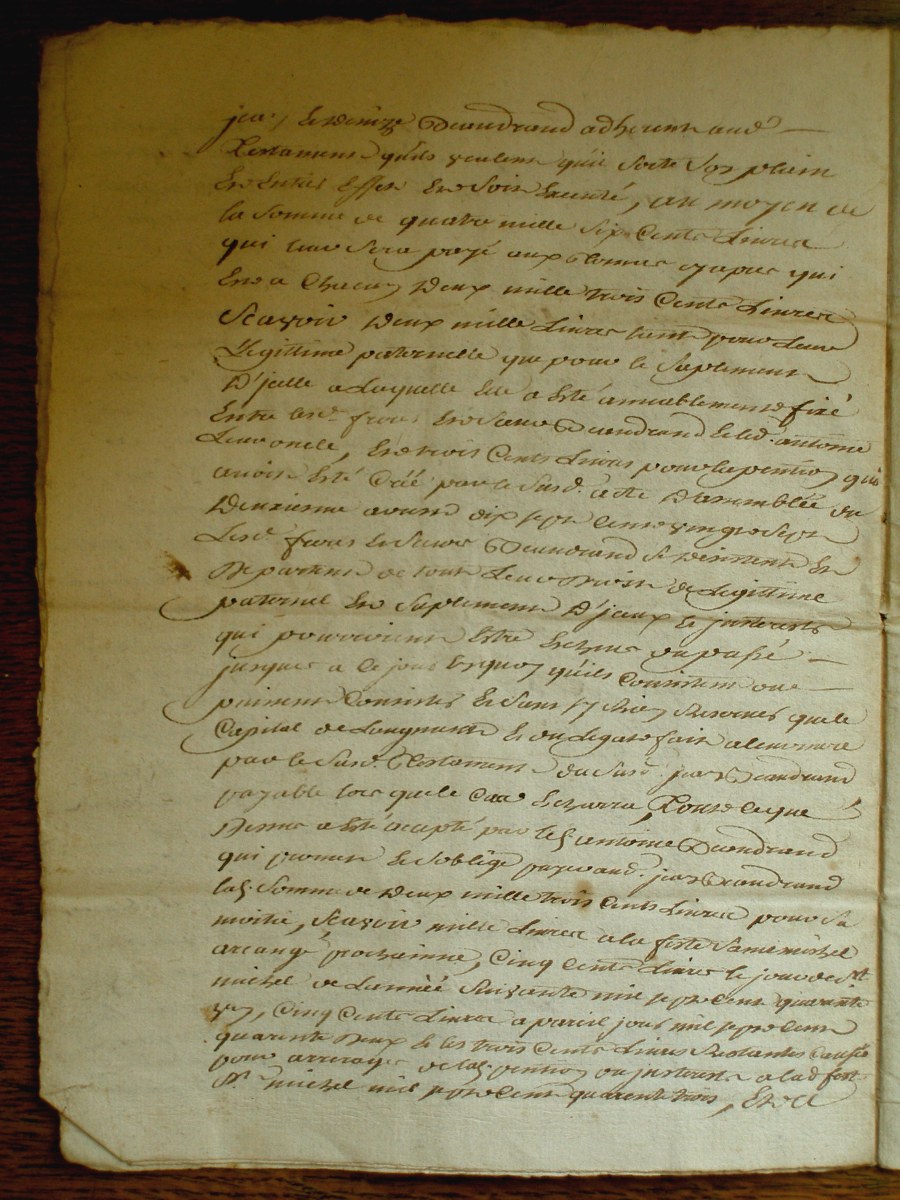 jean, et Denize Dcandrand adherent aud.
Testament qu'ils veulent qu'il sorte son plain
et entier effet et soit executé, au moyen de
la somme de quatre mille six cents livres
qui leur sera payé aux termes cy apres qui
est a chacun deux mille trois cents livres
scavoir deux mille livres tant pour leur
legittime paternelle que pour le suplement
d'jcelle a laquelle elle a esté amiablement fixé
entre lesd. freres et soeur Dcandrand et led. antoine
leur oncle, et trois cents livres pour la pention qui
avoit esté créé par le susd. acte d'assemblée du
deuxieme avout dix sept cent vingt sept
lesd. freres et soeur Dcandrand se desistent et
departent de tous leurs droits de legittime
paternel et suplement d'jceux et jnterests
qui pourroient estre echeus du passé
jusques a ce jour en quoy qu'ils consistent ou
puissent consister et sans s'y rien reserver que le
capital de l'augment et du legat fait a leur mere
par le susd. testament du susd. jean Dcandrand
payable lors que le cas echerra, tout ce que
dessus a esté accepté par led. antoine Dcandrand
qui promet et s'oblige payer aud. jean Dcandrand
lad. somme de deux mille trois cents livres pour sa
moitie, scavoir mille livres a la feste saint michel
arcange prochainne, cinq cents livres le jour de st
michel de l'année suivante mil sept cent quarante
un, cinq cents livres a pareil jour mil sept cent
quarante deux et les trois cents livres restantes causée
pour arrerages de lad. pention ou jnterests a lad. feste
St. michel mil sept cent quarante trois, et a